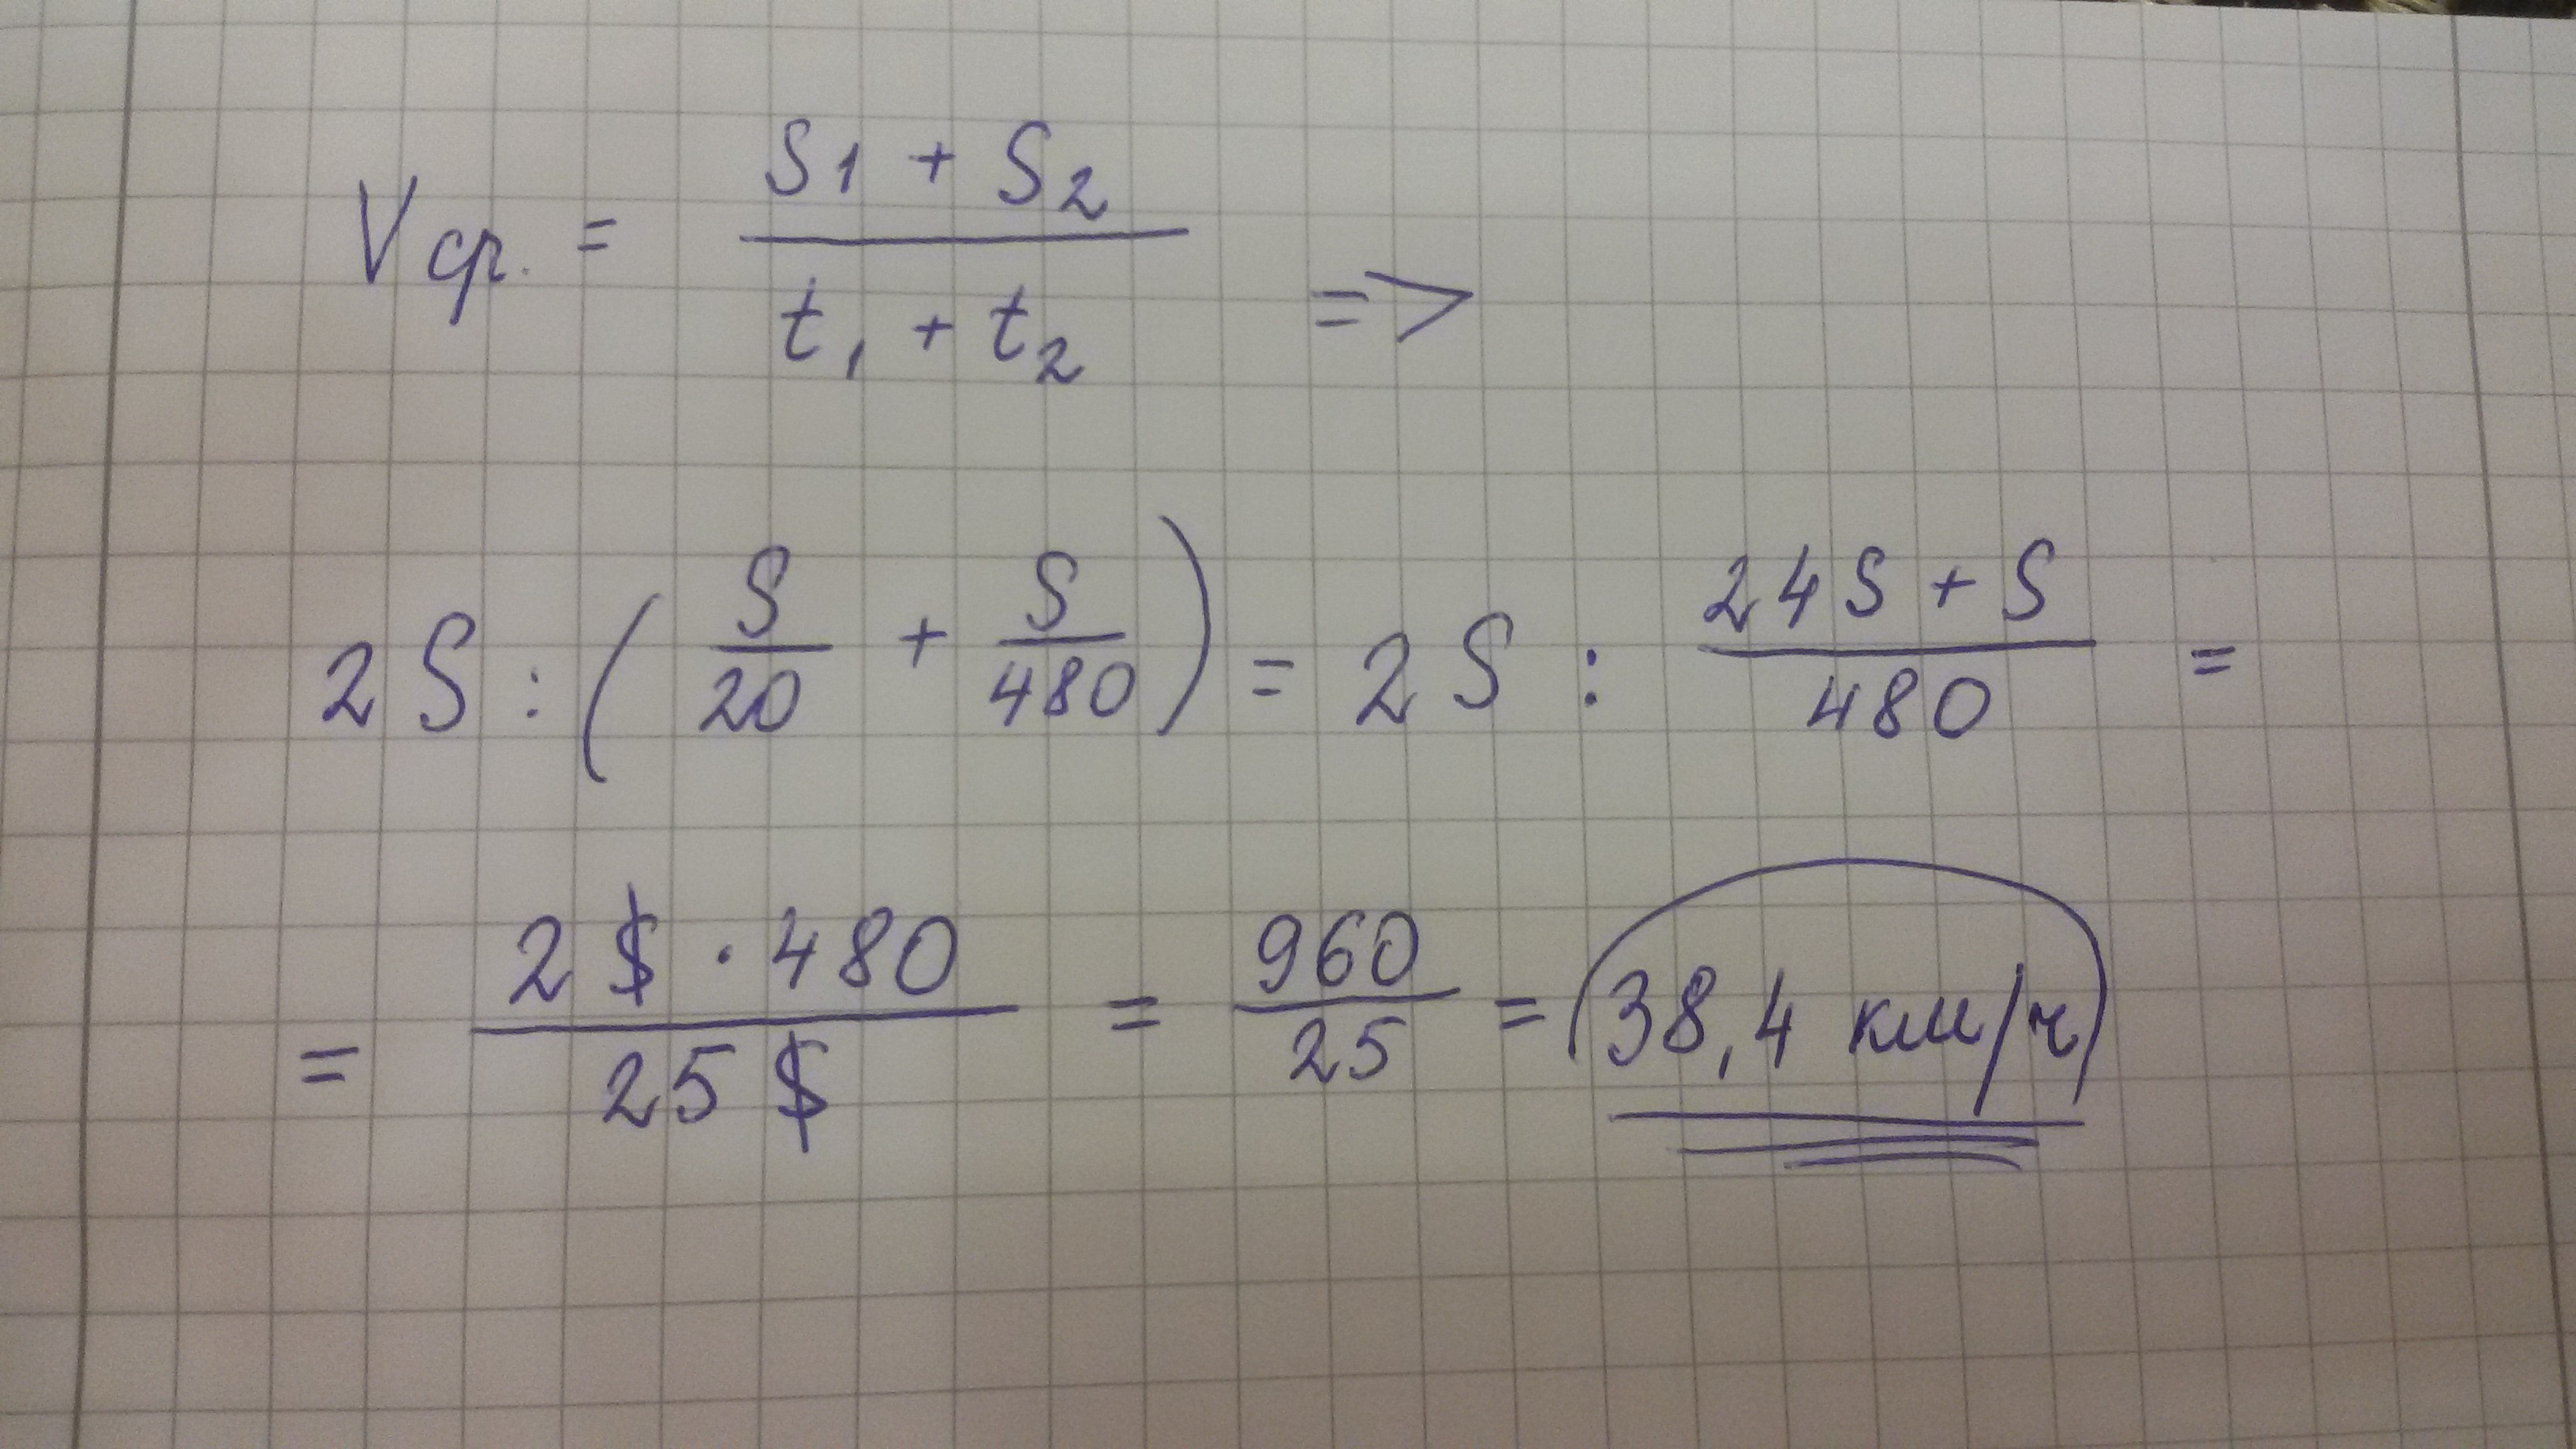 Vср. = (S1 + S2) / (t1 + t2) =>
2S : (S/20 + S/480) = 2S : (24S + S)/480 =
= (2S · 480)/(25S) = 960/25 = 38,4 км/ч